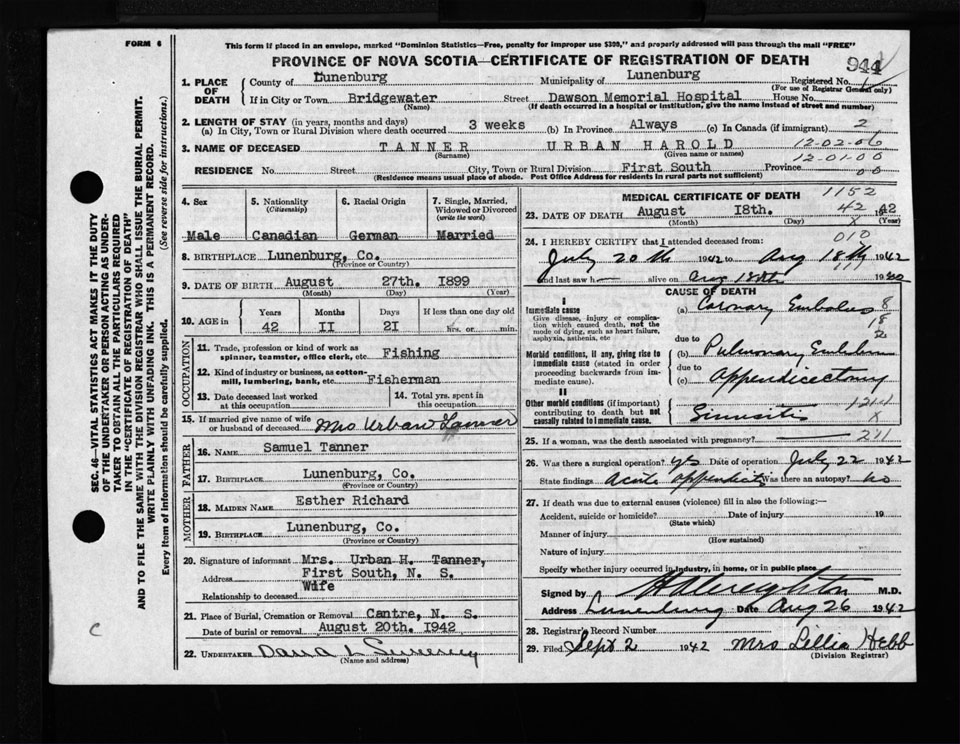 FORM 6
This form if placed in an envelope, marked "Dominion Statistics—Free, penalty for improper use $300," and properly addressed will pass through the mail "FREE"
PROVINCE OF NOVA SCOTIA—CERTIFICATE OF REGISTRATION OF DEATH
944
1. PLACE OF DEATH
County of Lunenburg Municipality of Lunenburg Registered No.
(For use of Registrar General only)
If in City or Town Bridgewater Street Dawson Memorial Hospital House No.
(Name) (If death occurred in a hospital or institution, give the name instead of street and number)
2. LENGTH OF STAY (in years, months and days)
(a) In City, Town or Rural Division where death occurred 3 weeks (b) In Province Always (c) In Canada (if immigrant) 2
3. NAME OF DECEASED TANNER URBAN HAROLD 12-02-06
(Surname) (Given name or names) 12-01-00
RESIDENCE No. Street City, Town or Rural Division First South Province 00
(Residence means usual place of abode. Post Office Address for residents in rural parts not sufficient)
4. Sex
Male
5. Nationality
(Citizenship)
Canadian
6. Racial Origin
German
7. Single, Married, Widowed or Divorced
(write the word)
Married
8. BIRTHPLACE Lunenburg, Co.
(Province or Country)
9. DATE OF BIRTH August 27th. 1899
(Month) (Day) (Year)
10. AGE in
Years Months Days If less than one day old
42 11 21 hrs. or min.
OCCUPATION
11. Trade, profession or kind of work as spinner, teamster, office clerk, etc. Fishing
12. Kind of industry or business, as cotton-mill, lumbering, bank, etc. Fisherman
13. Date deceased last worked at this occupation
14. Total yrs. spent in this occupation
15. If married give name of wife or husband of deceased Mrs Urban Tanner
FATHER
16. NAME Samuel Tanner
17. BIRTHPLACE Lunenburg, Co.
(Province or Country)
MOTHER
18. MAIDEN NAME Esther Richard
19. BIRTHPLACE Lunenburg, Co.
(Province or Country)
20. Signature of informant Mrs. Urban H. Tanner,
Address First South, N. S.
Relationship to deceased Wife
21. Place of Burial, Cremation or Removal Centre, N. S.
Date of burial or removal August 20th. 1942
22. UNDERTAKER
(Name and address)
MEDICAL CERTIFICATE OF DEATH
1152
23. DATE OF DEATH August 18th. 1942
(Month) (Day) (Year)
42
X
24. I HEREBY CERTIFY that I attended deceased from: 010
July 20th 1942 to Aug 18th 1942
111
and last saw h alive on Aug 18th 19
CAUSE OF DEATH
I
Immediate cause
Give disease, injury or complication which caused death, not the mode of dying, such as heart failure, asphyxia, asthenia, etc
(a) Coronary Embolus
due to
Morbid conditions, if any, giving rise to immediate cause (stated in order proceeding backwards from immediate cause).
(b) Pulmonary
due to
(c) Appendicectomy
II
Other morbid conditions (if important) contributing to death but not causally related to immediate cause.
X
25. If a woman, was the death associated with pregnancy? 211
26. Was there a surgical operation? yes Date of operation July 22 1942
State findings Acute Appendicitis Was there an autopsy? no
27. If death was due to external causes (violence) fill in also the following:—
Accident, suicide or homicide? Date of injury 19
(State which)
Manner of injury
(How sustained)
Nature of injury
Specify whether injury occurred in industry, in home, or in public place
Signed by M.D.
Address Lunenburg Date Aug 26 1942
28. Registrar's Record Number
29. Filed Sept 2 1942 Mrs Lillia Hebb
(Division Registrar)
SEC. 46—VITAL STATISTICS ACT MAKES IT THE DUTY
OF THE UNDERTAKER OR PERSON ACTING AS UNDER-
TAKER TO OBTAIN ALL THE PARTICULARS REQUIRED
IN THE "CERTIFICATE OF REGISTRATION OF DEATH"
AND TO FILE THE SAME WITH THE DIVISION REGISTRAR WHO SHALL ISSUE THE BURIAL PERMIT.
WRITE PLAINLY WITH UNFADING INK. THIS IS A PERMANENT RECORD.
Every item of information should be carefully supplied. (See reverse side for instructions.)
C